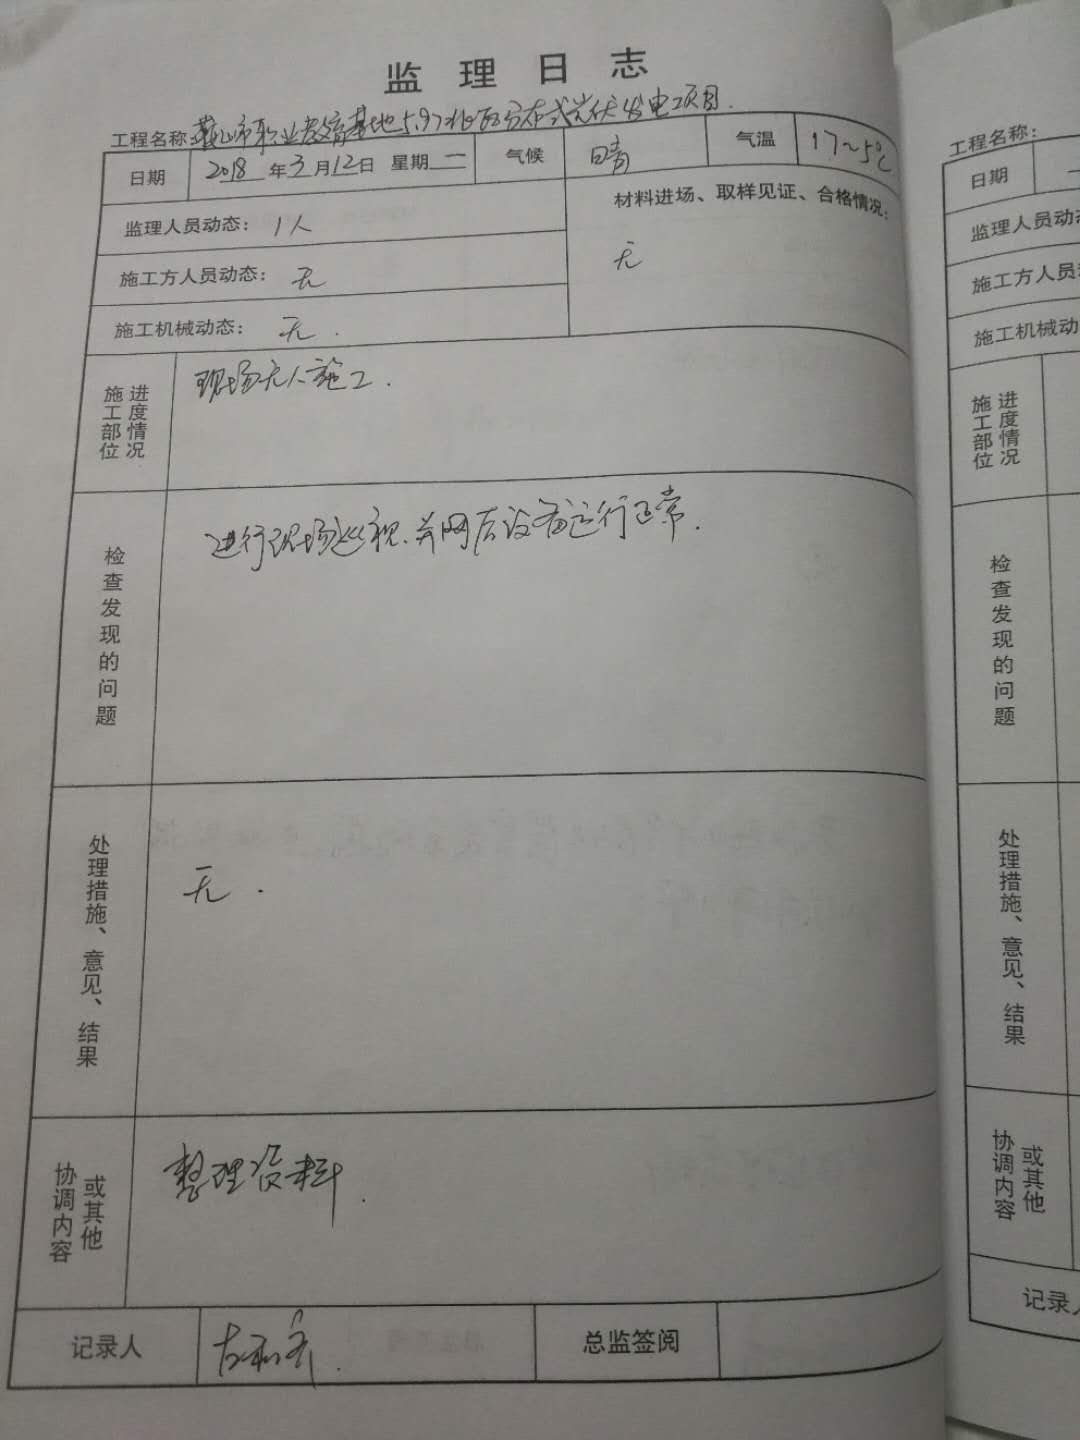 监理日志
工程名称: 市职业教育基地5.97兆瓦分布式光伏发电项目.
日期 2018年3月12日 星期一 气候 晴 气温 17~5℃
监理人员动态: 1人
材料进场、取样见证、合格情况:
无
施工方人员动态: 无
施工机械动态: 无.
施工部位进度情况
现场无人施工.
检查发现的问题
进行现场巡视.并网后设备运行正常.
处理措施、意见、结果
无.
协调内容或其他
整理资料.
记录人
总监签阅
工程名称:
日期
监理人员动态
施工方人员
施工机械动
施工部位进度情况
检查发现的问题
处理措施、意见、结果
协调内容或其他
记录人